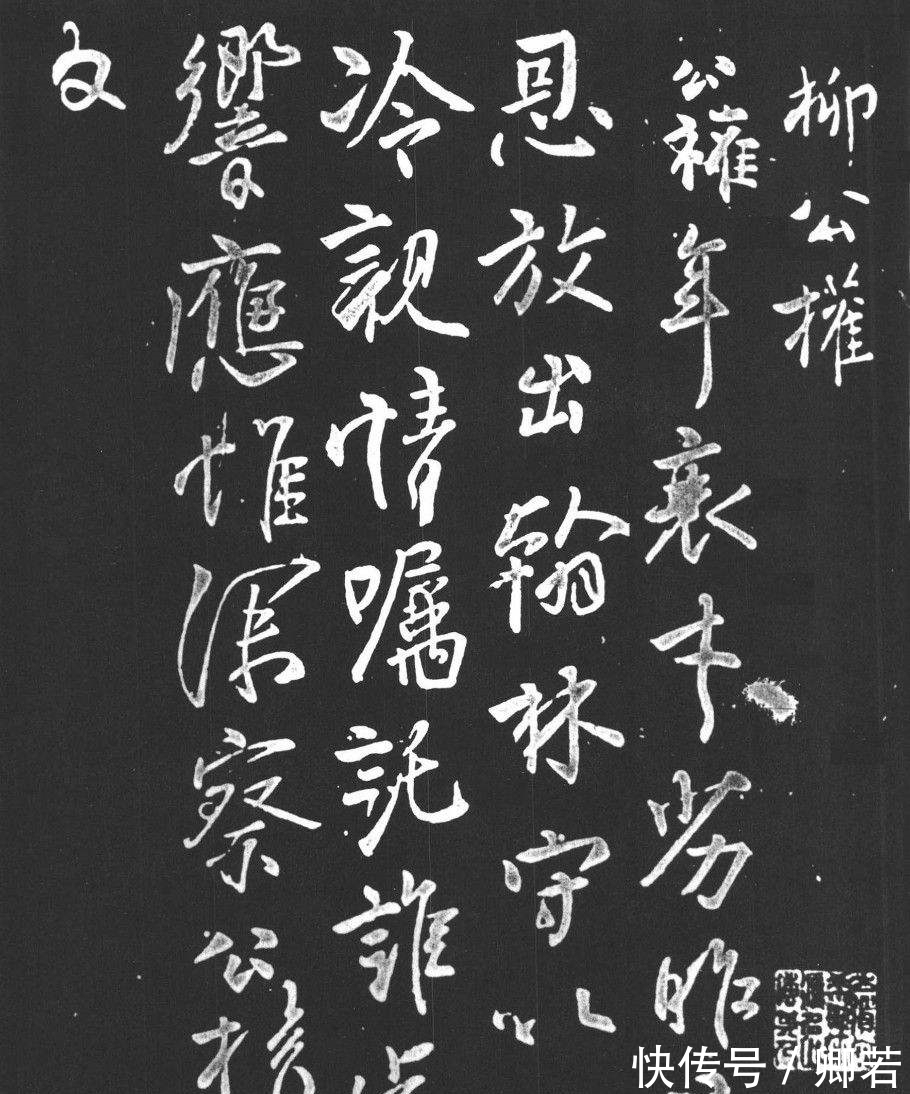 柳公權
公權年衰才劣昨
恩放出翰林守以
冷親情囑託誰肯
響應惟深察公權
敬
快传号 / 卿若